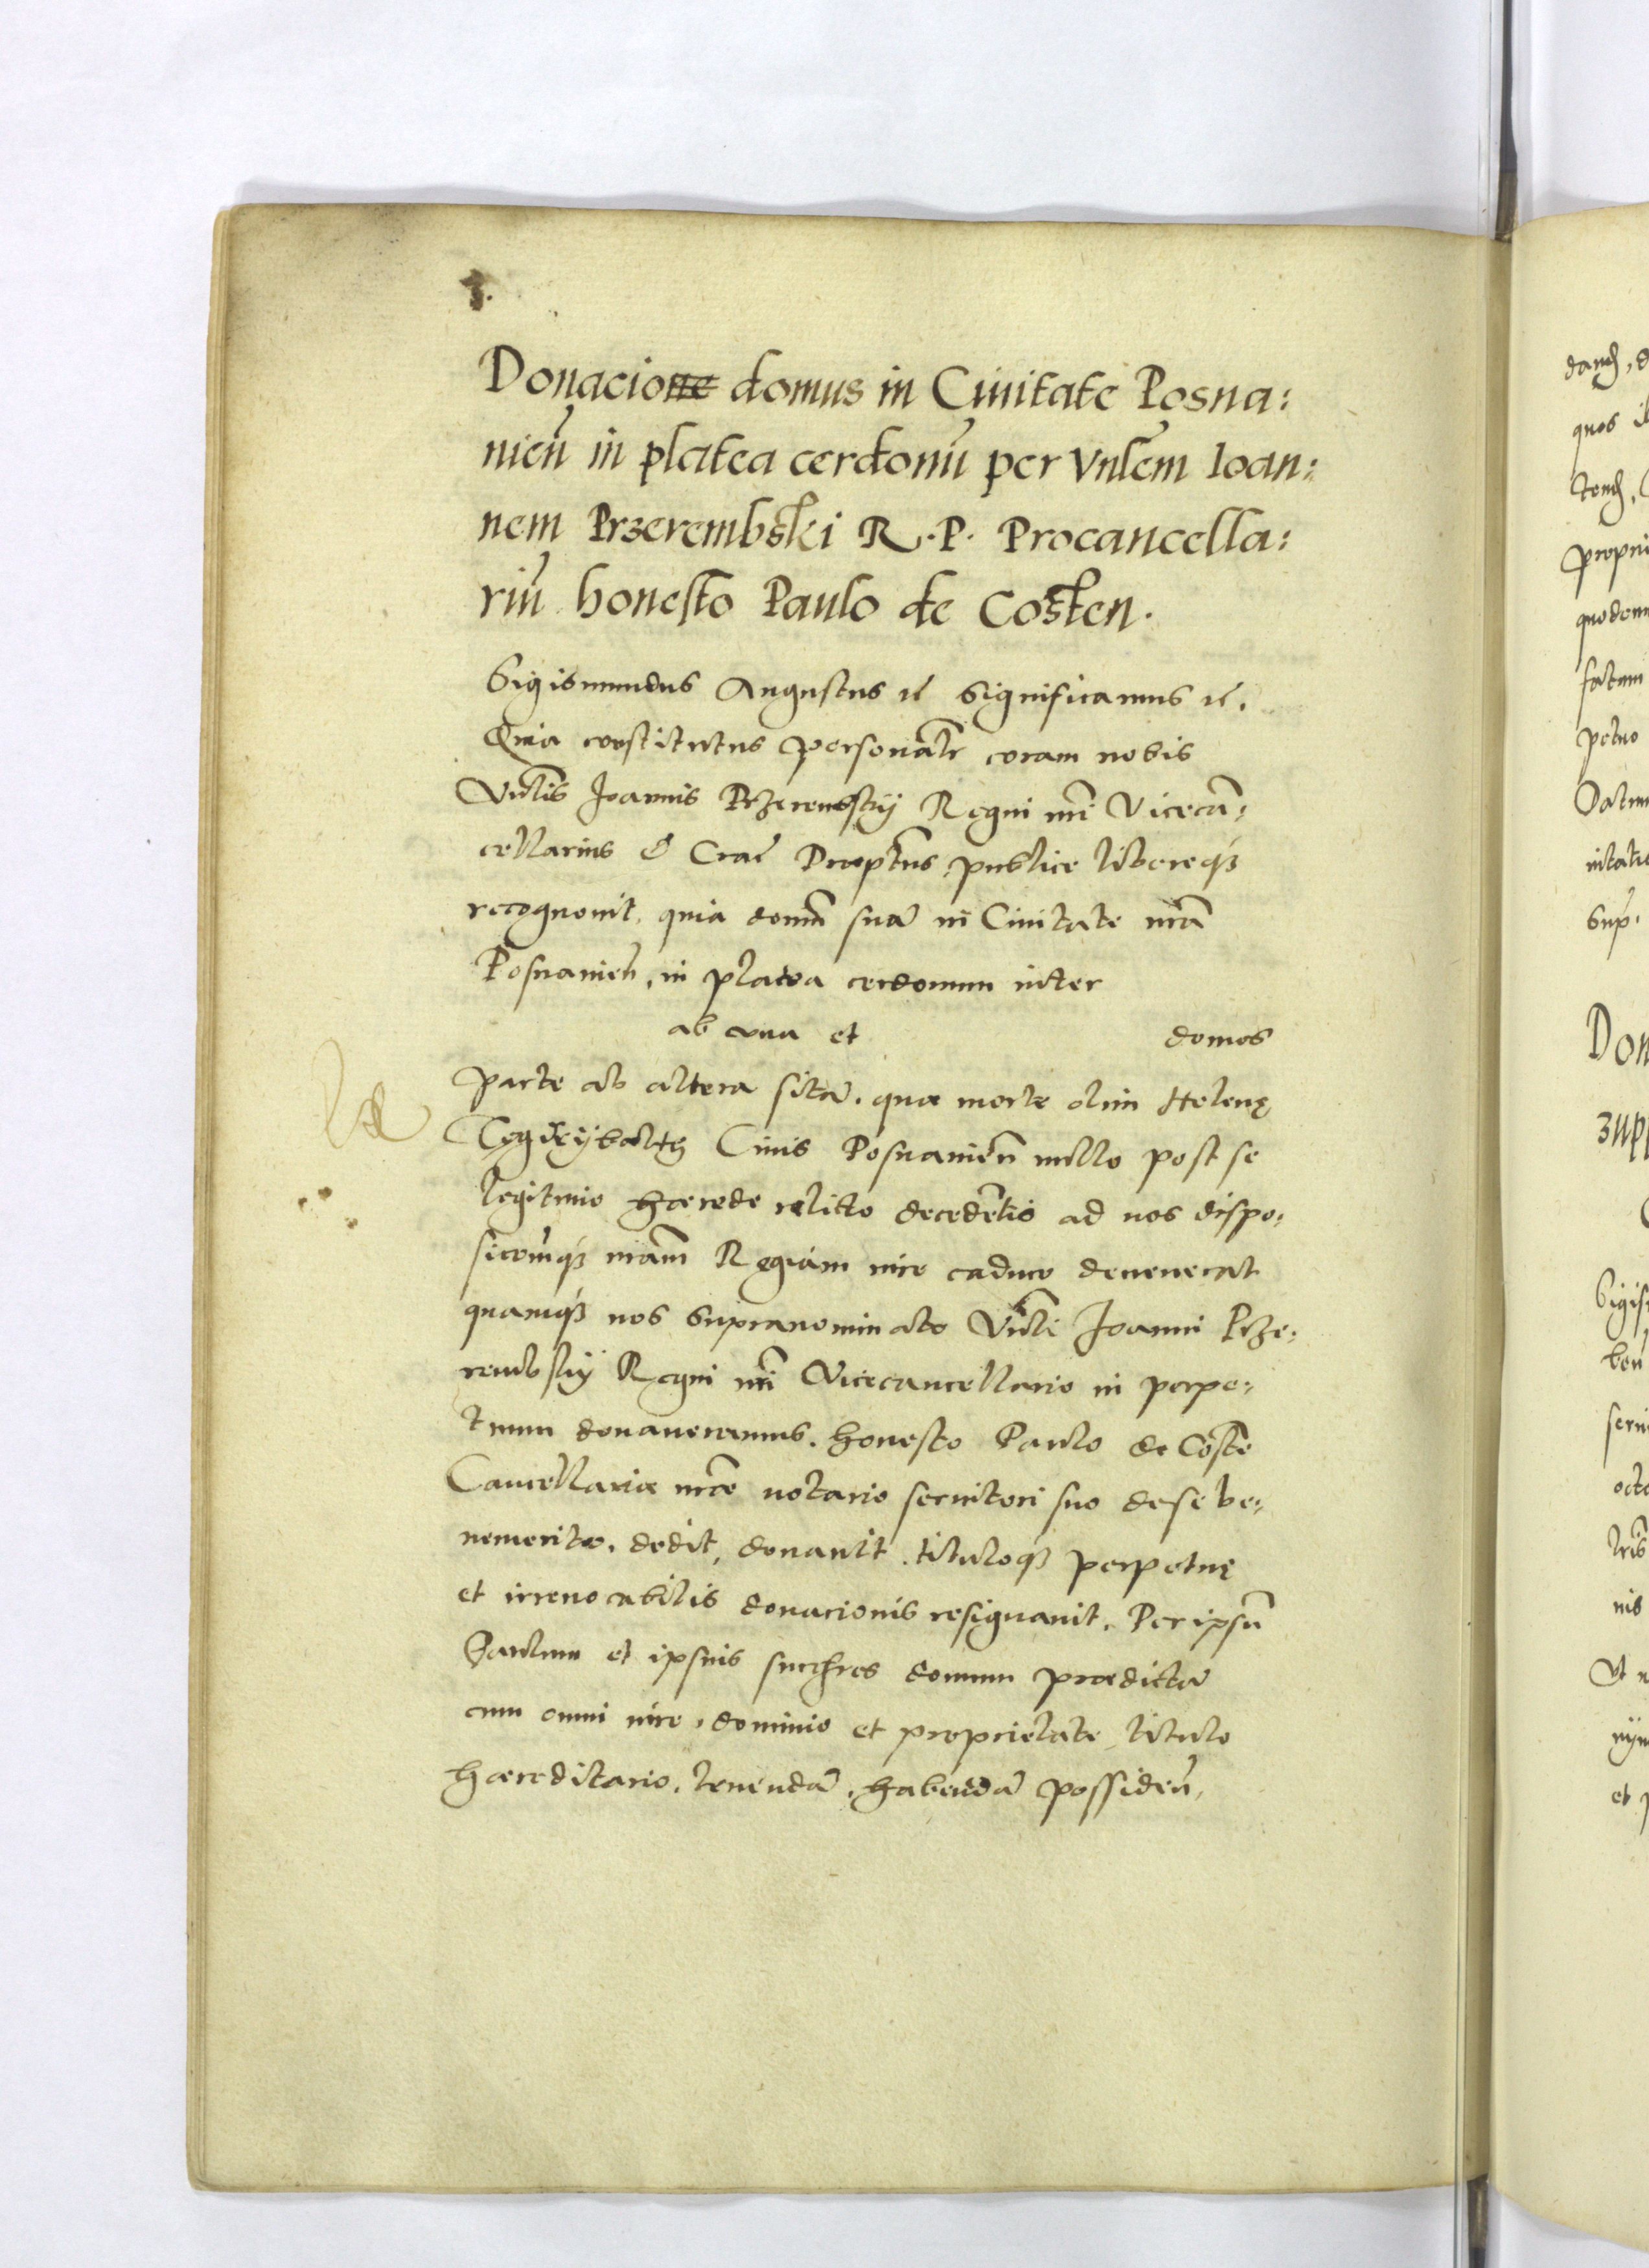 Donacio domus in Civitate Posna:
nień in platea cerdonū per Vnlem Ioan:
nem Przerembski R. P. Procancella:
riū honesto Paulo de Costen.
Sigismundus Augustus ꝛc̄ significamus ꝛc̄.
Quia constitutus personalr̄ coram nobis
Vnlis Joannis Przerembskij Regni nr̄i Vicecā:
cellarius & Crac̄ Praeptus, publice libereq₃
recognovit, quia domū suā in Civitate nr̄a
Posnanień, in platea cerdonum inter
ab una et domos
parte ab altera sitā, quae morte olim Helenę
Civis Posnanień nullo post se
legitimo haerede relicto decedētis ad nos dispo:
sicionēq₃ nr̄am Regiam iure caduco devenerat
quamq₃ nos supranominato Vnli Joanni Prze:
rembskij Regni nr̄i Vicecancellario in perpe:
tuum donaveramus. honesto Paulo de Coste
Cancellariae nr̄ae notario servitori suo de se be:
nemerito, dedit, donavit, tituloq₃ perpetuę
et irrevocabilis donacionis resignavit. Per ipsū
Paulum et ipsius succēres domum praedictā
cum omni iure, dominio et proprietate titulo
haereditario, tenendā, habendā possideń,
danḍ,
quos
tenḍ,
propri
quodcum
factum
petuo
Datum
sup.
Don
zup
Sigis
beń
servi
octo
nis
Vt
et